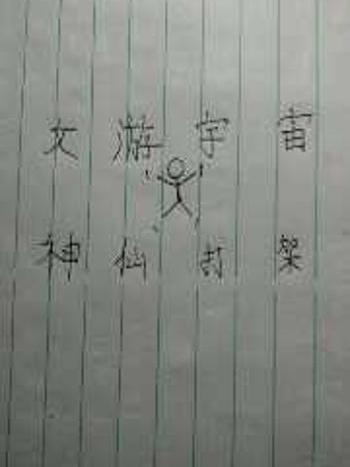 文游宇宙
神仙打架